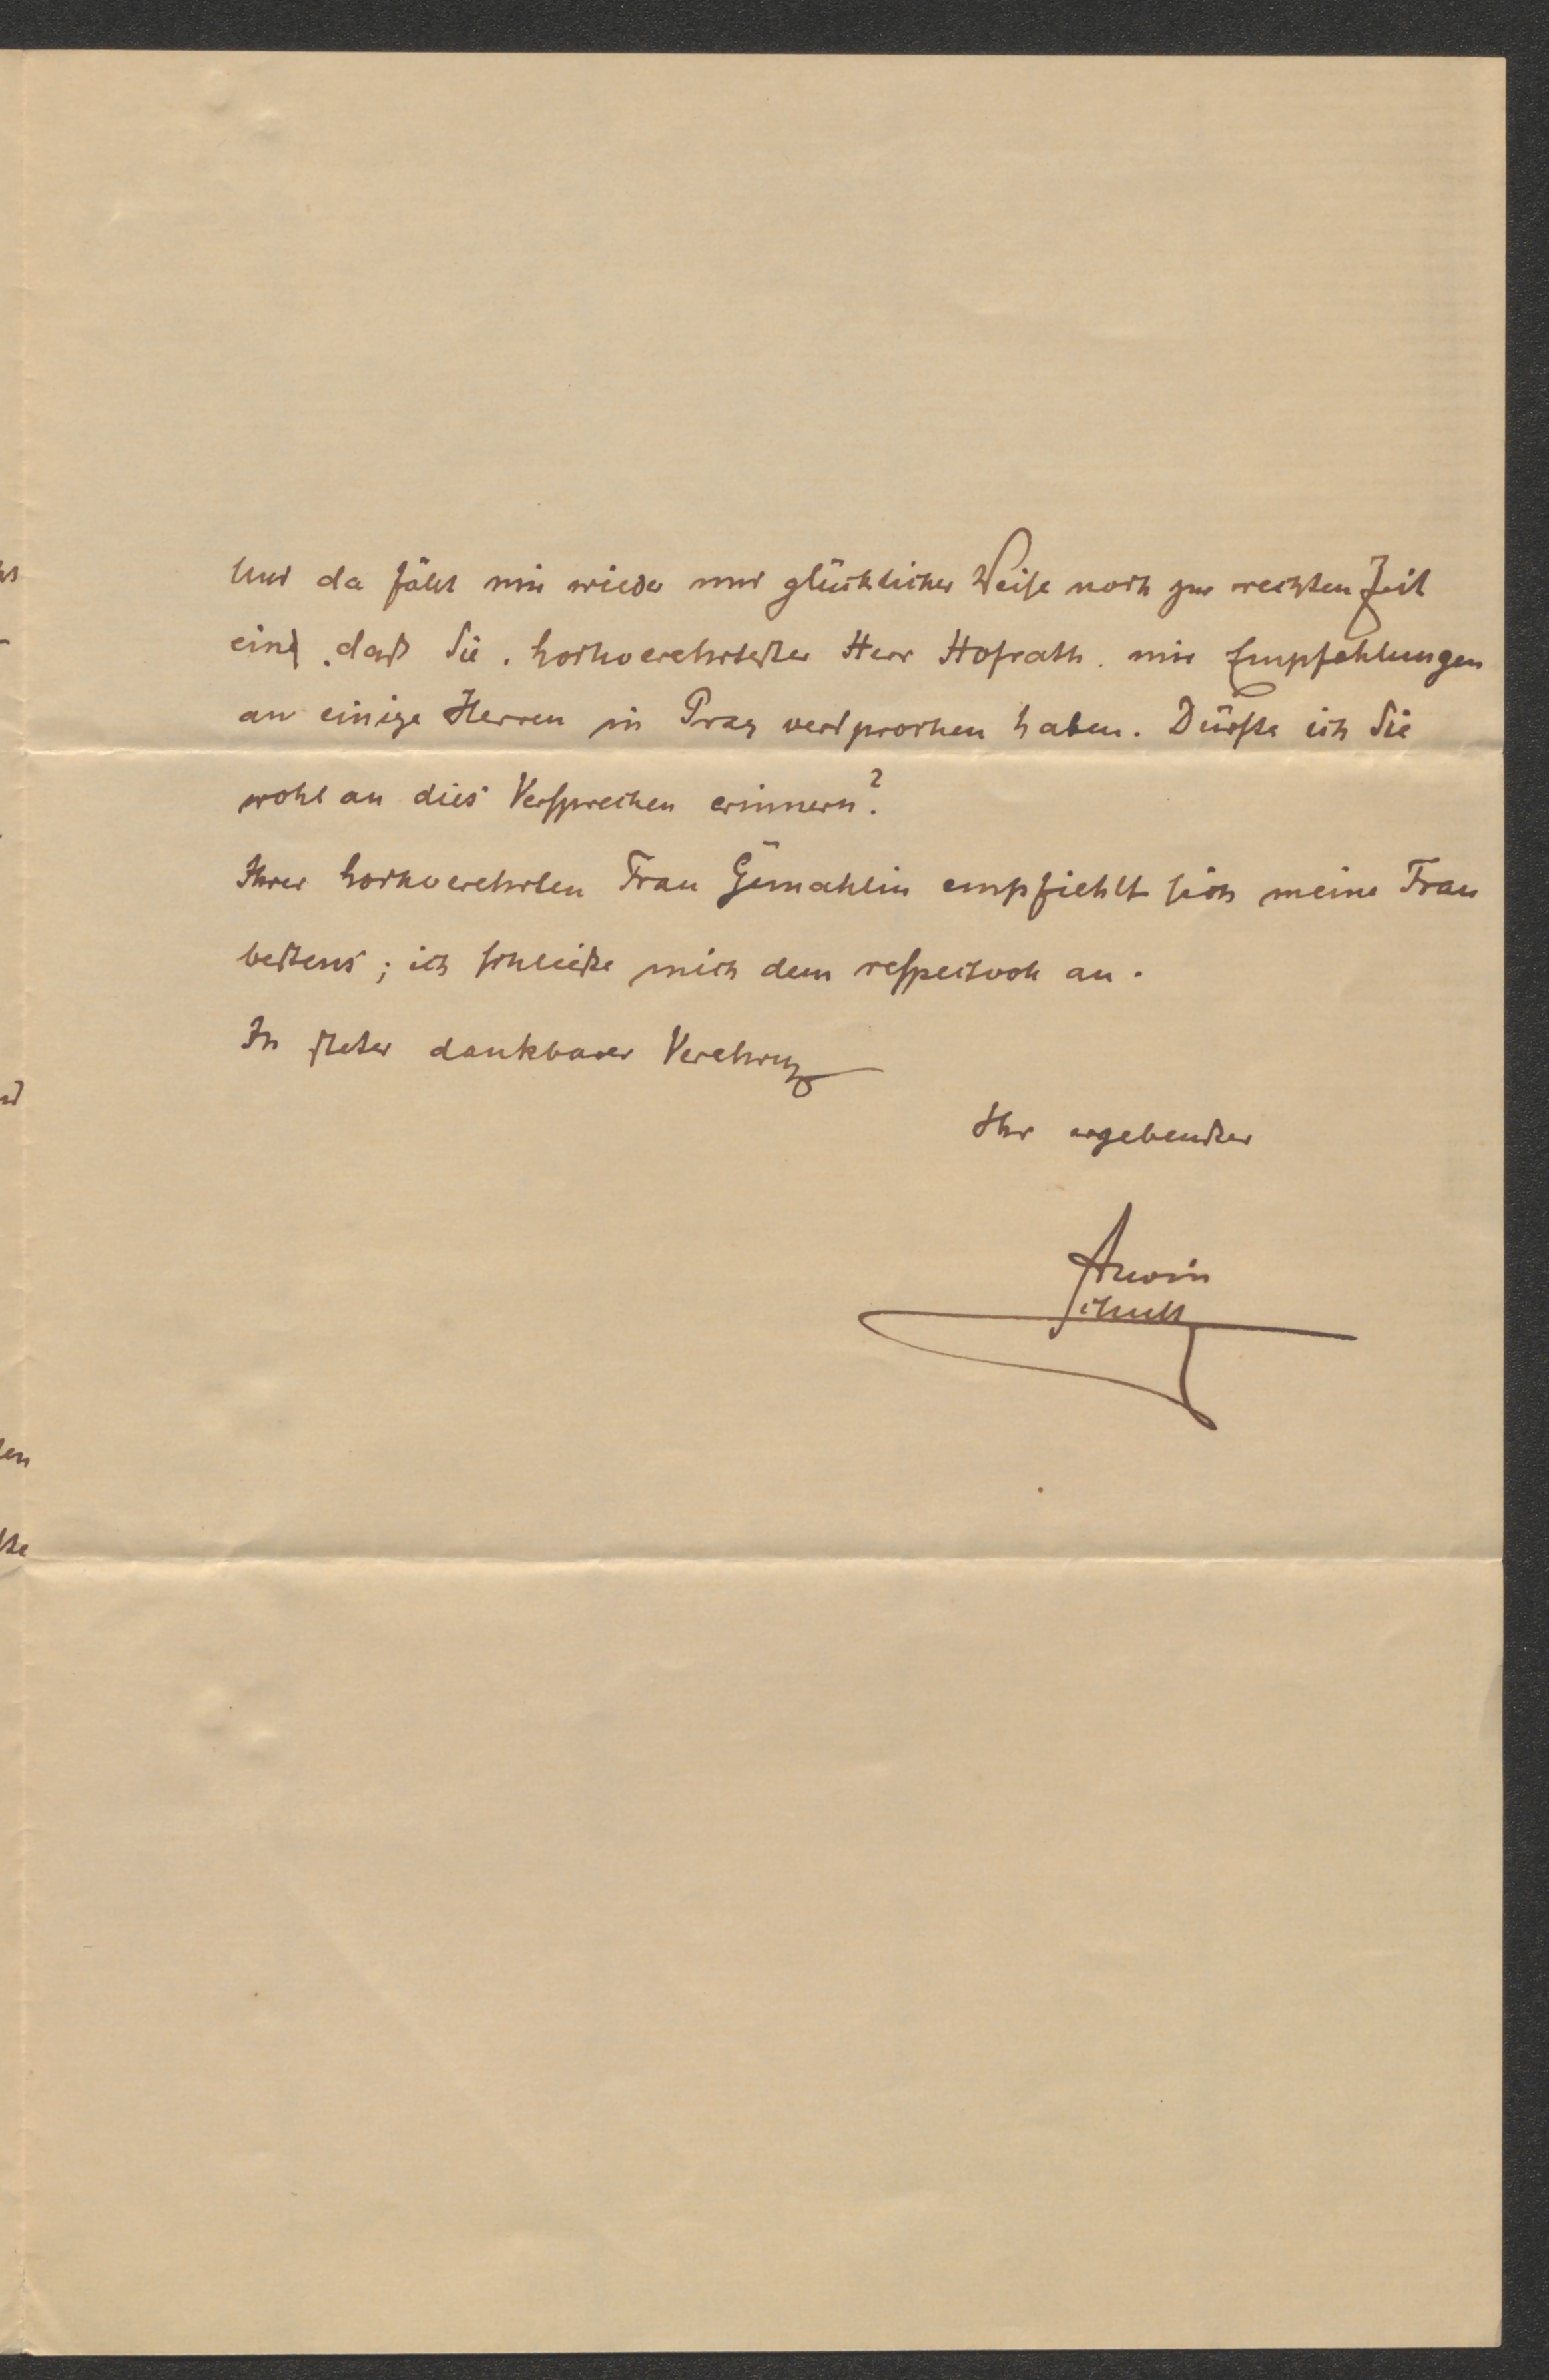 Und da fällt mir wieder nur glücklicher Weise noch zur rechten Zeit
ein, daß Sie, hochverehrtester Herr Hofrath, mir Empfehlungen
an einige Herren in Prag versprochen haben. Dürfte ich Sie
wohl an dies Versprechen erinnern?
Ihrer hochverehrten Frau Gemahlin empfiehlt sich meine Frau
bestens; ich schließe mich dem respectvoll an.
In steter dankbarer Verehrung
Ihr ergebenster
Alwin
Schultz